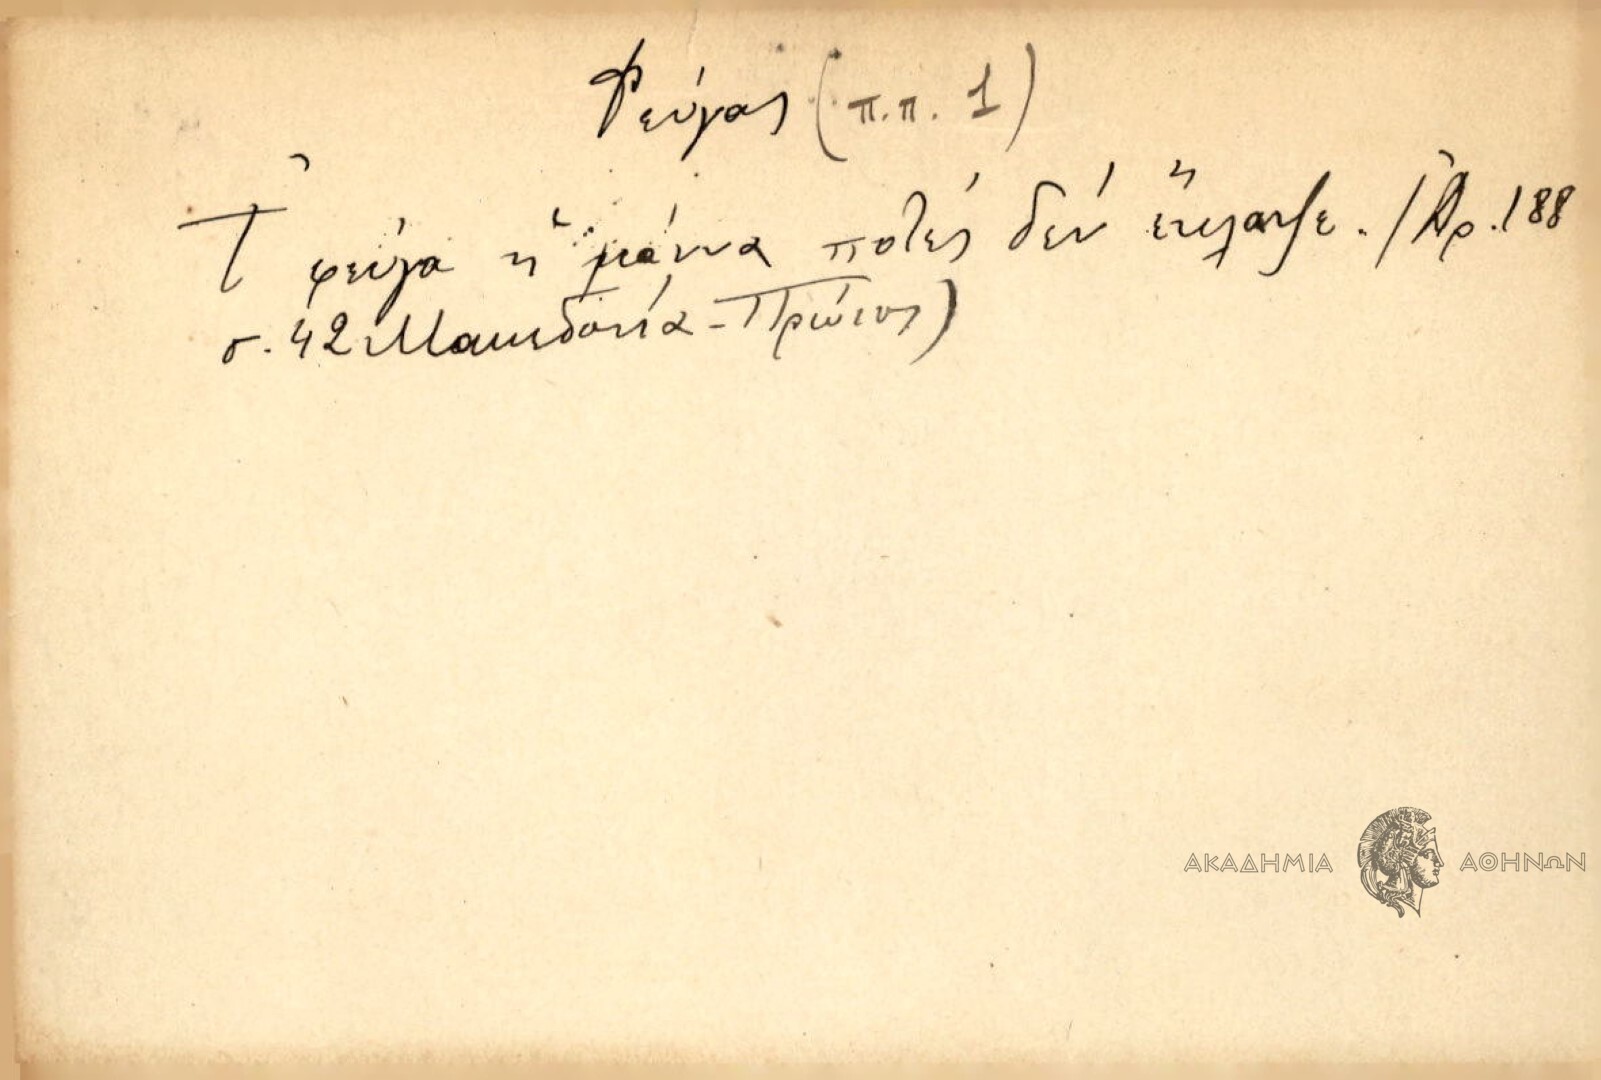 Φεύγας (π.π. 1)
Τ̓ φεύγα ἡ μάννα ποτές δέν ἔκλαψε. (Ἀρ. 188
σ. 42 Μακεδονία - Πρώιος)
ΑΚΑΔΗΜΙΑ ΑΘΗΝΩΝ